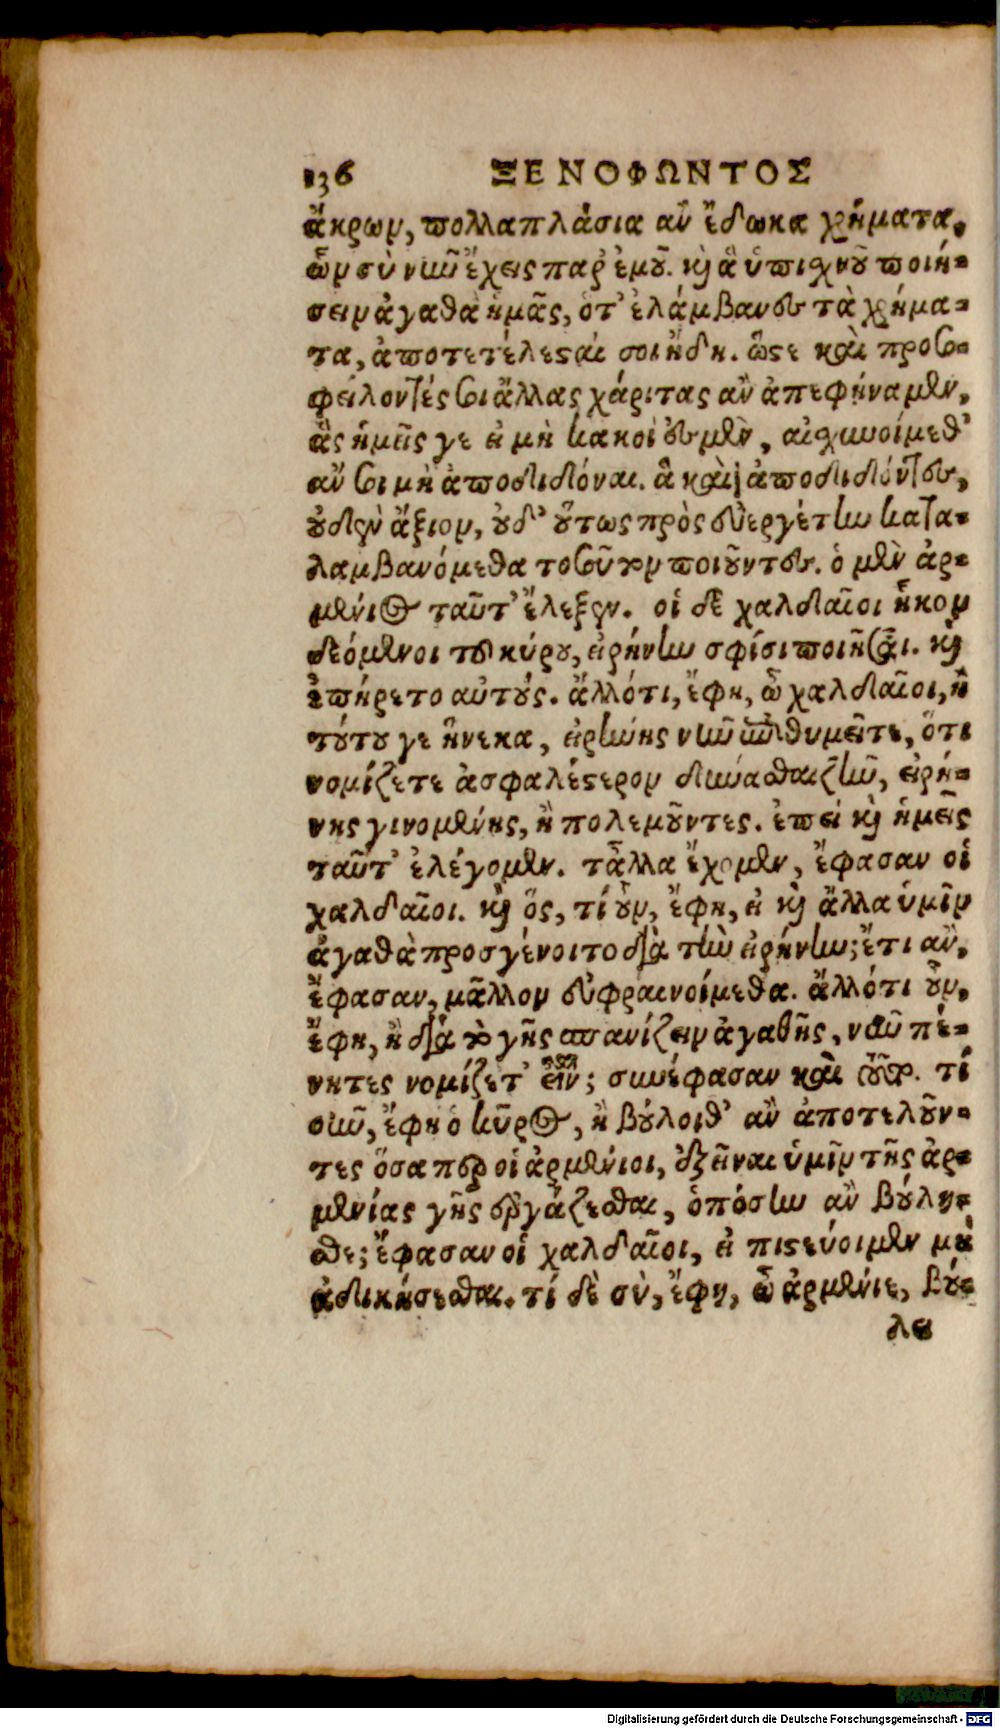 136 ΞΕΝΟΦΩΝΤΟΣ
ἄκρων, πολλαπλάσια ἂν ἔδωκα χρήματα,
ὧν σὺ νῦν ἔχεις παρ' ἐμοῦ. καὶ ἃ ὑπισχνοῦ ποιή-
σειν ἀγαθὰ ἡμᾶς, ὅτ' ἐλάμβανες τὰ χρήμα-
τα, ἀποτετέλεσταί σοι ἤδη. ὥστε καὶ προσο-
φείλοντές σοι ἄλλας χάριτας ἂν ἀπεφήναμεν,
ἃς ἡμεῖς γε εἰ μὴ κακοί ἐσμεν, αἰσχυνοίμεθ'
ἄν σοι μὴ ἀποδιδόναι. ἃ καὶ ἀποδιδόντες,
οὐδὲν ἄξιον, οὐδ' οὕτως πρὸς εὐεργέτην κατα-
λαμβανόμεθα τοσοῦτον ποιοῦντες. ὁ μὲν ἀρ-
μένιος ταῦτ' ἔλεξεν. οἱ δὲ χαλδαῖοι ἧκον
δεόμενοι τοῦ κύρου, εἰρήνην σφίσι ποιῆσαι. καὶ
ἐπήρετο αὐτούς. ἄλλότι, ἔφη, ὦ χαλδαῖοι, ἢ
τούτου γε ἥνεκα, εἰρήνης νῦν ἐπιθυμεῖτε, ὅτι
νομίζετε ἀσφαλέστερον δύνασθαι ζῆν, εἰρή-
νης γινομένης, ἢ πολεμοῦντες. ἐπεὶ καὶ ἡμεῖς
ταῦτ' ἐλέγομεν. τἆλλα ἔχομεν, ἔφασαν οἱ
χαλδαῖοι. καὶ ὅς, τί οὖν, ἔφη, εἰ καὶ ἄλλα ὑμῖν
ἀγαθὰ προσγένοιτο διὰ τὴν εἰρήνην; ἔτι ἂν,
ἔφασαν, μᾶλλον εὐφραινοίμεθα. ἄλλότι οὖν,
ἔφη, ἢ διὰ τὸ γῆς σπανίζειν ἀγαθῆς, νῦν πέ-
νητες νομίζετ' εἶναι; συνέφασαν καὶ τοῦτο. τί
οὖν, ἔφη ὁ κῦρος, ἢ βούλοιθ' ἂν ἀποτελοῦν-
τες ὅσαπερ οἱ ἀρμένιοι, ἐξεῖναι ὑμῖν τῆς ἀρ-
μενίας γῆς ἐργάζεσθαι, ὁπόσην ἂν βούλη-
σθε; ἔφασαν οἱ χαλδαῖοι, εἰ πιστεύοιμεν μὴ
ἀδικήσεσθαι. τί δὲ σὺ, ἔφη, ὦ ἀρμένιε, βού-
λει
Digitalisierung gefördert durch die Deutsche Forschungsgemeinschaft - DFG